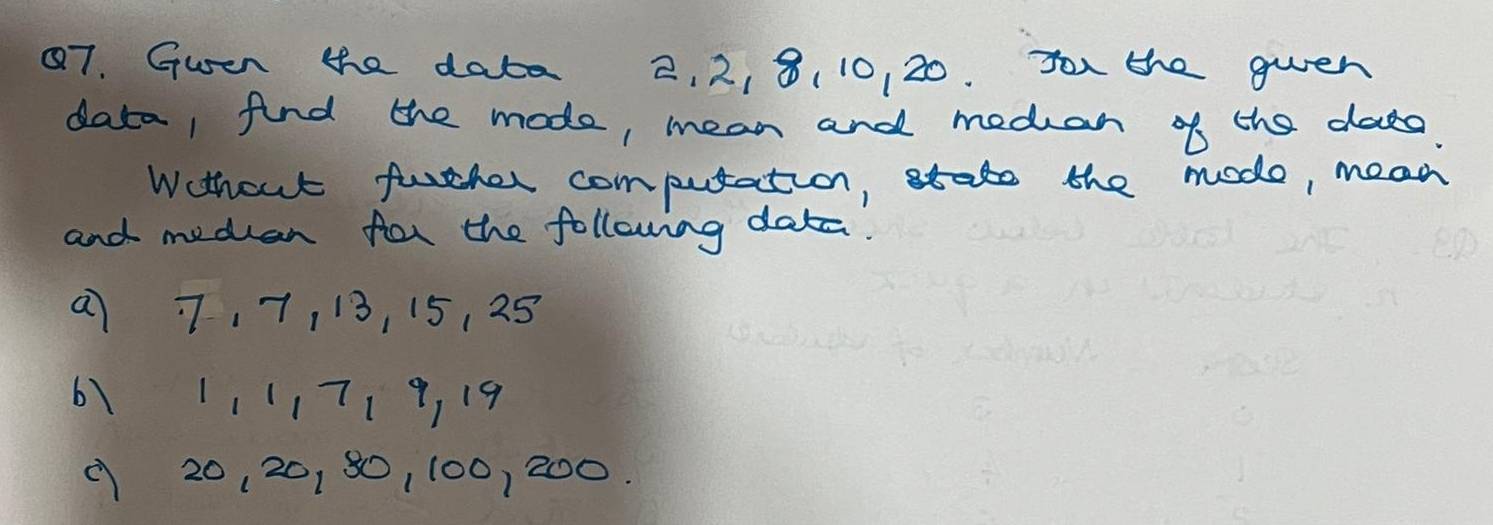 Q7. Given the data 2, 2, 8, 10, 20. For the given
data, find the mode, mean and median of the data.
Without further computation, state the mode, mean
and median for the following data.
a) 7, 7, 13, 15, 25
b) 1, 1, 7, 9, 19
c) 20, 20, 80, 100, 200.